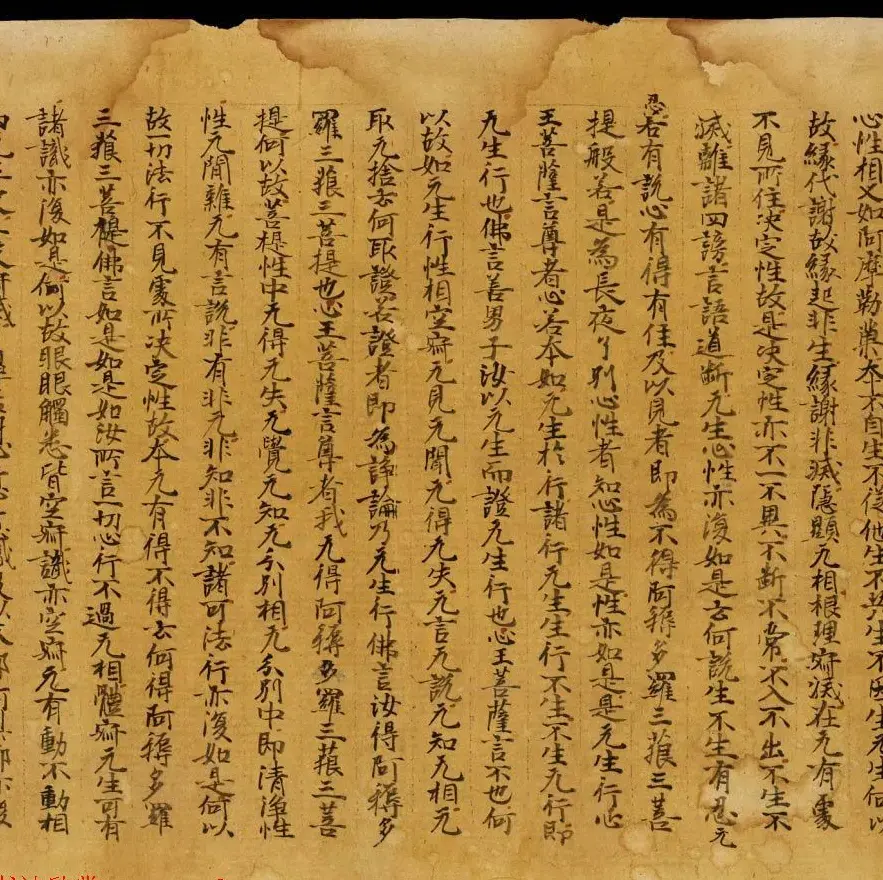 心性相又如阿摩勒菓本不自生不從他生不共生不因生无生何以
故緣代謝故緣起非生緣謝非滅隱顯无相根理寂滅在无有處
不見所住決定性故是決定性亦不一不異不斷不常不入不出不生不
滅離諸四謗言語道斷无生心性亦復如是云何說生不生有忍无
忍若有說心有得有住及以見者即為不得阿耨多羅三藐三菩
提般若是為長夜了別心性者知心性如是性亦如是是无生行心
王菩薩言尊者心若本如无生於行諸行无生生行不生不生无行即
无生行也佛言善男子汝以无生而證无生行也心王菩薩言不也何
以故如无生行性相空寂无見无聞无得无失无言无說无知无相无
取无捨云何取證若證者即為諍論乃无生行佛言汝得阿耨多
羅三藐三菩提也心王菩薩言尊者我无得阿耨多羅三藐三菩
提何以故菩提性中无得无失无覺无知无分別相无分別中即清淨性
性无間雜无有言說非有非无非知非不知諸可法行亦復如是何以
故一切法行不見處所決定性故本无有得不得云何得阿耨多羅
三藐三菩提佛言如是如是如汝所言一切心行不過无相體寂无生可有
諸識亦復如是何以故眼眼觸悉皆空寂識亦空寂无有動不動相